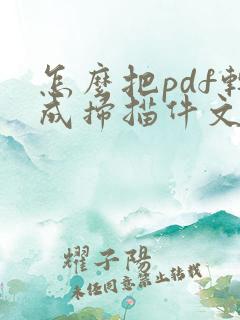 怎麼把pdf轉
成掃描件文
耀子陽
未經同意禁止轉載